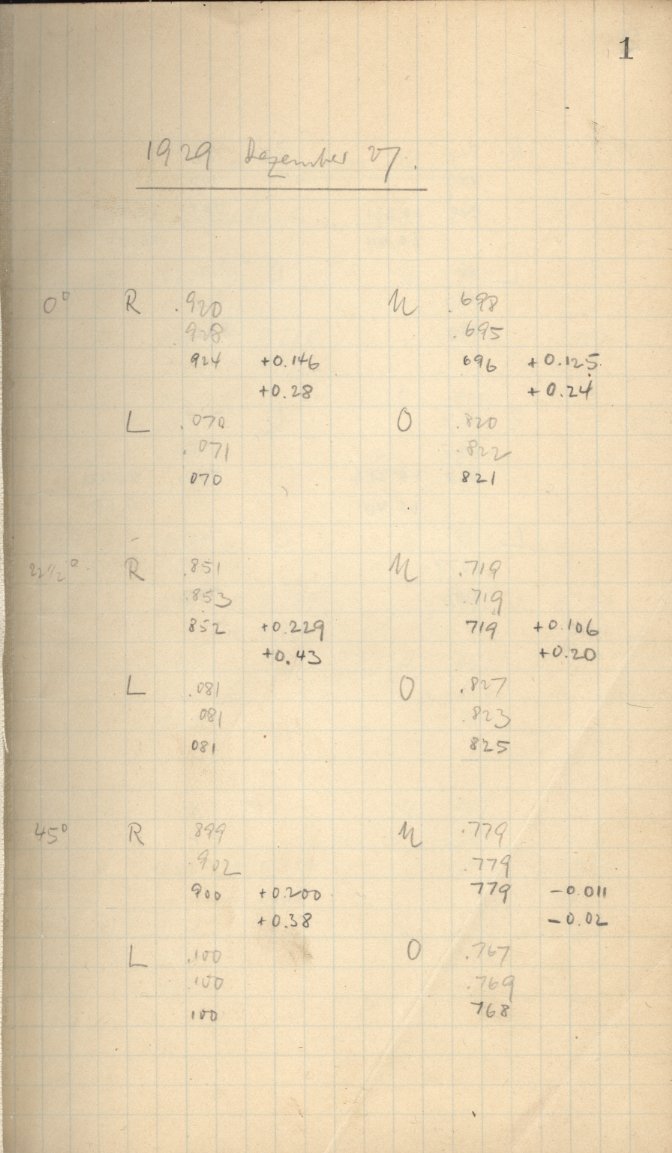 1
1929 Dezember 27.
0° R .920 U .698
.928 .695
924 +0.146 696 +0.125
+0.28 +0.24
L .070 O .820
.071 .822
070 821
22 1/2° R .851 U .719
.853 .719
852 +0.229 719 +0.106
+0.43 +0.20
L .081 O .827
081 .823
081 825
45° R 899 U .779
.902 .779
900 +0.200 779 -0.011
+0.38 -0.02
L .100 O .767
.100 .769
100 768